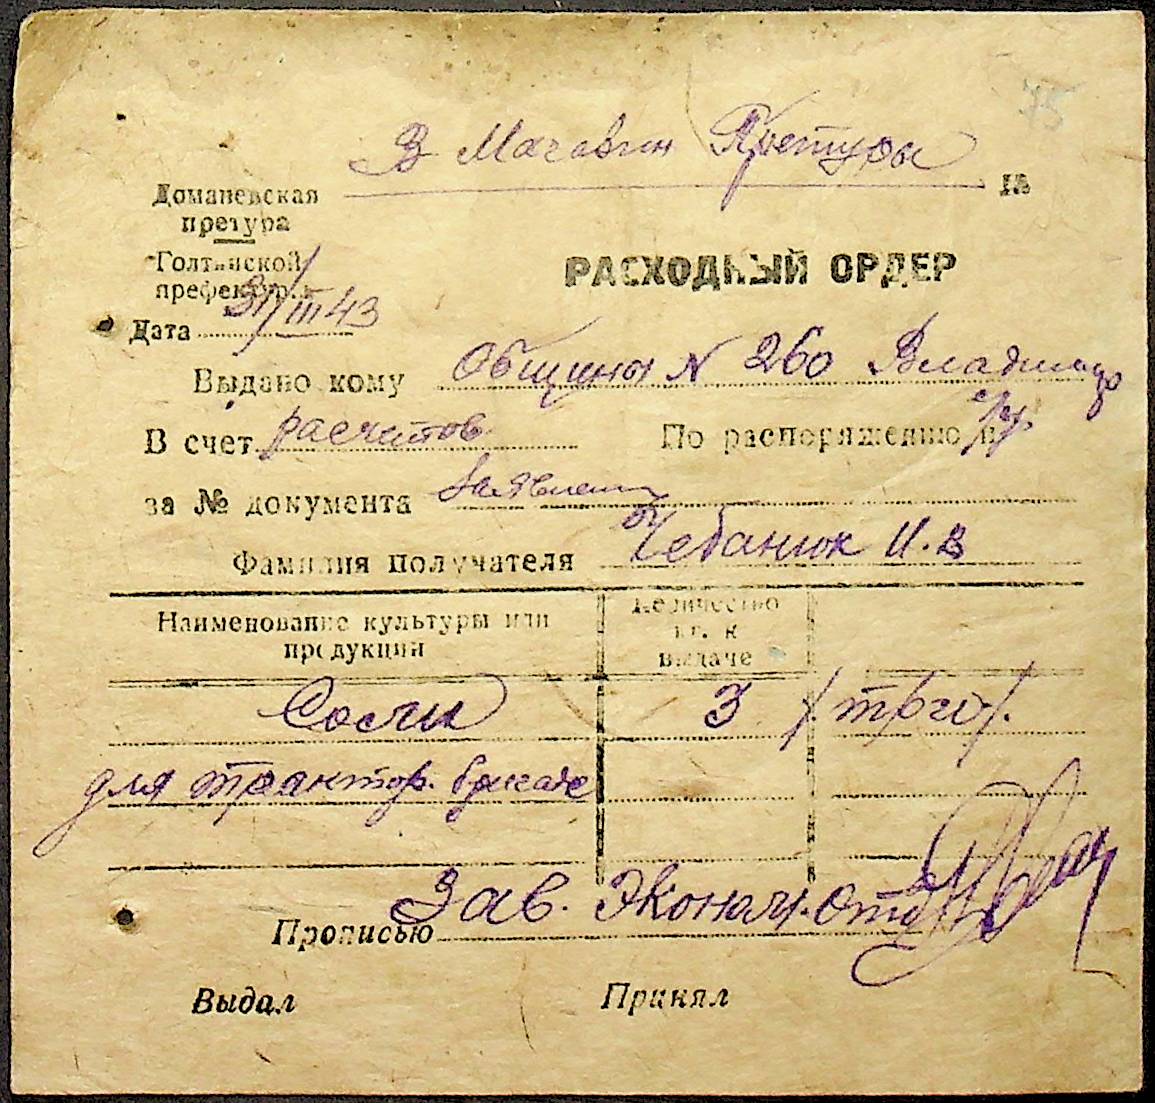 75
В Магазин Претуры №
Доманевская
претура
Голтянской
префектур.
РАСХОДНЫЙ ОРДЕР
Дата 31/III 43
Выдано кому Общины N 260 Владимир
В счет расчетов По распоряжению и
за № документа Заявлен
Фамилия получателя Чебанюк И.В
Наименование культуры или
продукции
Количество
кг. к
выдаче
Соли 3 /три/.
для трактор. бригаде
Зав. Эконом. Отд
Прописью
Выдал Принял